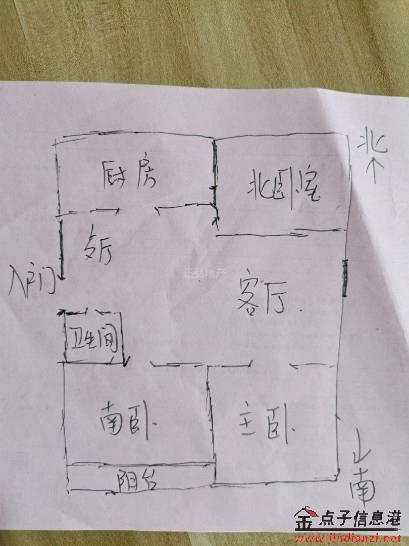 北
厨房
北卧室
客厅
入户门
卫生间
南卧
主卧
阳台
南
金点子信息港
www.jindianzi.net